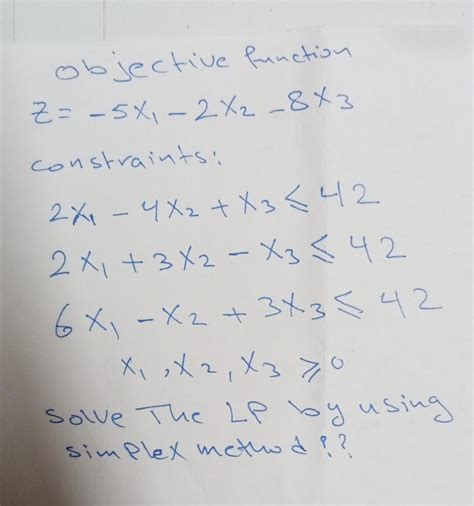 objective function
Z= -5x₁ - 2x₂ - 8x₃
constraints:
2x₁ - 4x₂ + x₃ ⩽ 42
2x₁ + 3x₂ - x₃ ⩽ 42
6x₁ - x₂ + 3x₃ ⩽ 42
x₁, x₂, x₃ ⩾ 0
solve The LP by using
simplex method??